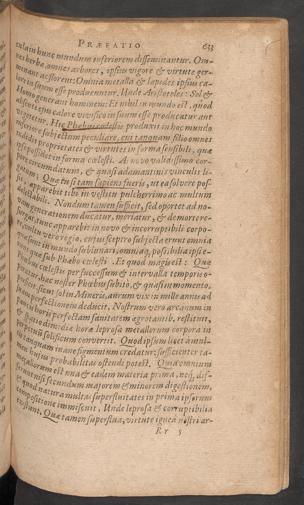 PRÆFATIO 633
in hunc mundum inferiorem disseminantur. Om-
nes herbæ, omnes arbores, ipsius vigore & virtute ger-
minant ac florent: Omnia metalla & lapides ipsius ca-
lore in suum esse producuntur. Unde Aristoteles: Sol &
Homo generant hominem: Et nihil in mundo est, quod
absque calore vivifico in suum esse producatur aut
vegetetur. Hic Phœbus cœlestis produxit in hoc mundo
inferiore subjectum peculiare, cui tanquam filio omnes
proprietates & virtutes in forma sensibili, quæ
in forma cœlesti. A novo validissimo cor-
& quasi adamantinis vinculis li-
gatum: Quæ tu si tam sapiens fueris, ut ea solvere pos-
sis, apparebit tibi in vestitu pulcherrimo ac multum
delectabili. Nondum tamen sufficit, sed oportet ad no-
vam generationem ducatur, moriatur, & de morte re-
surgat, tunc apparebit in novo & incorruptibili corpo-
re, multo vero regio, cujus sceptro subjecta erunt omnia
in mundo sublunari, omniaque possibilia ipsi erunt,
quæ sub Phœbo cœlesti. Et quod magis est: Quæ
Phœbus cœlestis per successum & intervalla temporis o-
peratur, hæc noster Phœbus subitò, & quasi in momento,
sicut solis in Mineris, aurum vix in mille annis ad
suam perfectionem deducit. Nostrum verò arcanum in
paucis horis perfectam sanitatem ægrotantib. restituit,
& spatio dimidiæ horæ leprosa metallorum corpora in
perpetuum solificum convertit. Quod ipsum licet à mul-
tis tanquam inane figmentum credatur: sufficienter ta-
men hujus probabilitas ostendi potest. Quia omnium
metallorum est una & eadem materia prima, neque dif-
ferunt nisi secundum majorem & minorem digestionem,
& quod natura multas superfluitates in prima ipsorum
compositione immiscuit, Unde leprosa & corruptibilia
fiunt. Quæ tamen superflua, virtute ignea nostri ar-
Rr 5